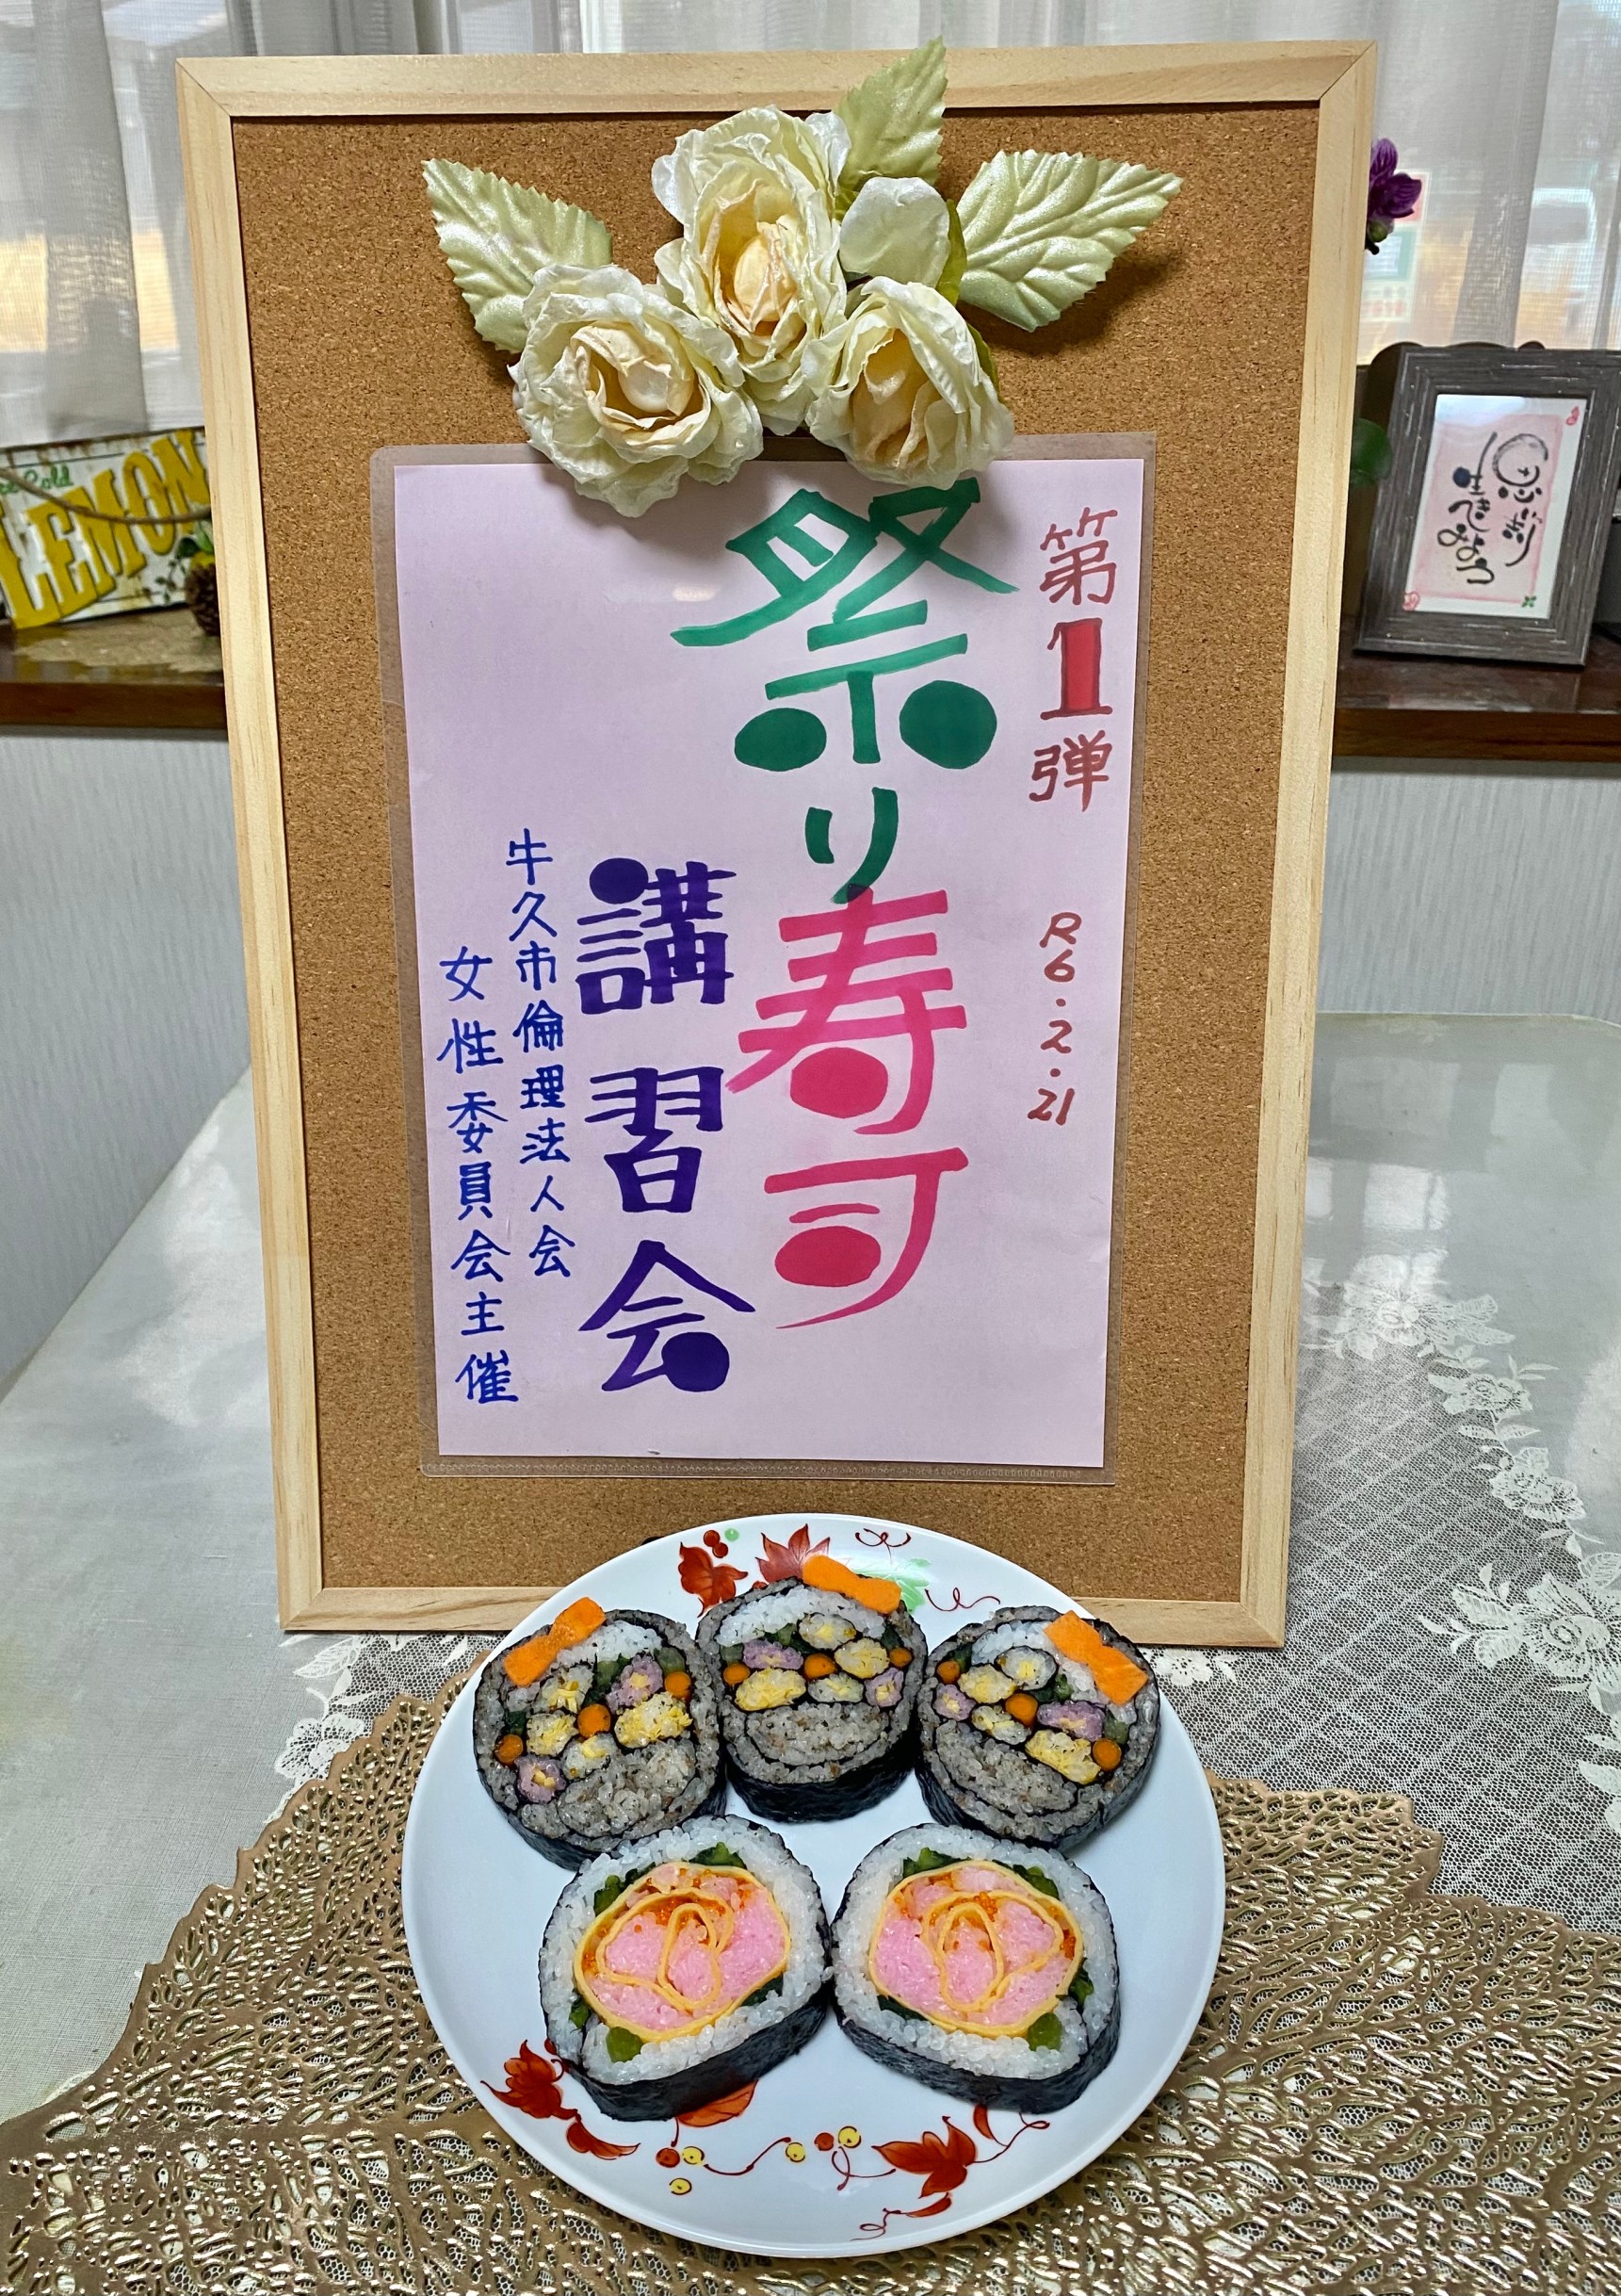 第1弾 R6.2.21
祭り寿司
講習会
牛久市倫理法人会
女性委員会主催
LEMON
思いきり
生きよう